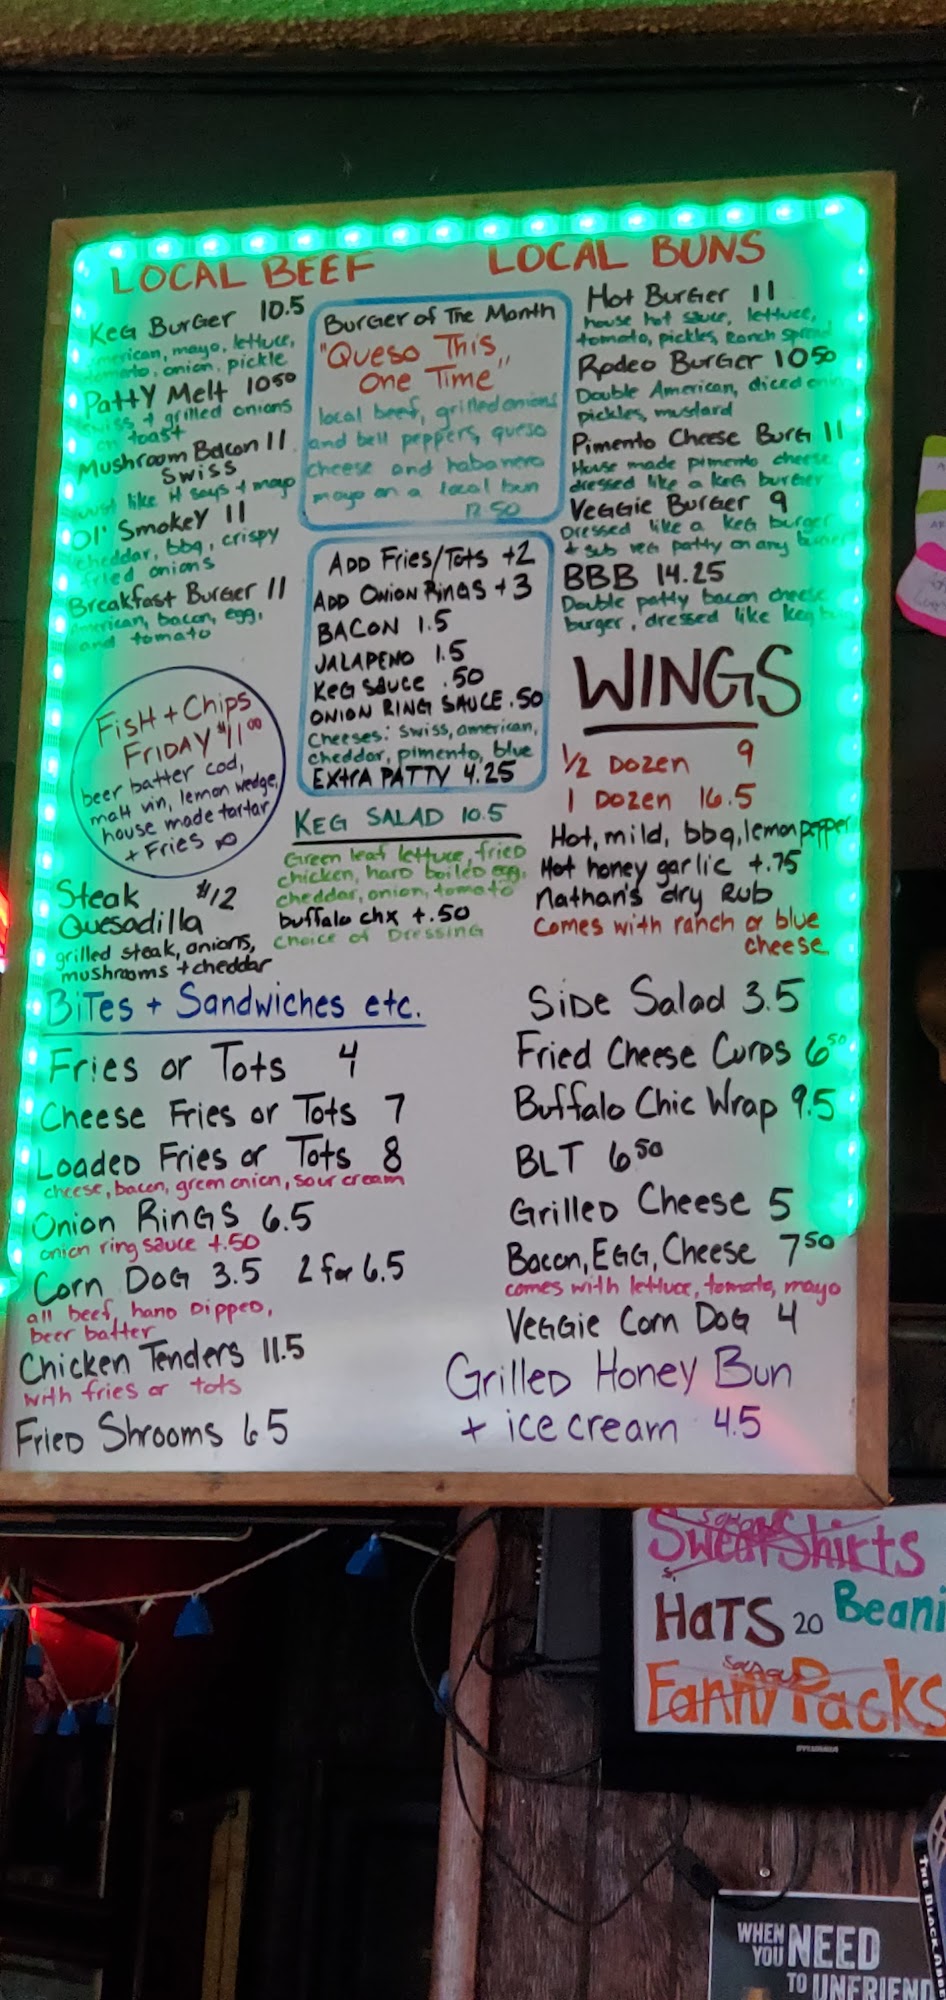 LOCAL BEEF
LOCAL BUNS
Keg Burger 10.5
American, mayo, lettuce,
tomato, onion, pickle
Patty Melt 10 50
swiss + grilled onions
on toast
Mushroom Bacon 11
Swiss
Just like it says + mayo
Ol' Smokey 11
cheddar, bbq, crispy
fried onions
Breakfast Burger 11
American, bacon, egg,
and tomato
Burger of The Month
"Queso This
One Time"
local beef, grilled onions
and bell peppers, queso
cheese and habanero
mayo on a local bun
12.50
Hot Burger 11
house hot sauce, lettuce,
tomato, pickles, Ranch spread
Rodeo Burger 10 50
Double American, diced onion
pickles, mustard
Pimento Cheese Burg 11
House made pimento cheese
dressed like a keg burger
Veggie Burger 9
Dressed like a keg burger
+ sub veg patty on any burger
BBB 14.25
Double patty bacon cheese
burger, dressed like keg
ADD Fries/Tots +2
ADD Onion Rings +3
BACON 1.5
JALAPENO 1.5
Keg Sauce .50
ONION RING SAUCE .50
Cheeses: Swiss, american,
cheddar, pimento, blue
EXTRA PATTY 4.25
Fish + Chips
FRIDAY $11 00
beer batter cod,
malt vin, lemon wedge,
house made tartar
+ Fries
WINGS
1/2 Dozen 9
1 Dozen 16.5
Hot, mild, bbq, lemon pepper
Hot honey garlic +.75
Nathan's dry Rub
Comes with ranch or blue
cheese
KEG SALAD 10.5
Green leaf lettuce, fried
chicken, hard boiled egg,
cheddar, onion, tomato
buffalo chx +.50
Choice of Dressing
Steak $12
Quesadilla
grilled steak, onions,
mushrooms + cheddar
Bites + Sandwiches etc.
Fries or Tots 4
Cheese Fries or Tots 7
Loaded Fries or Tots 8
cheese, bacon, green onion, sour cream
Onion Rings 6.5
onion ring sauce +.50
Corn Dog 3.5 2 for 6.5
all beef, hand Dipped,
beer batter
Chicken Tenders 11.5
with fries or tots
Fried Shrooms 6.5
Side Salad 3.5
Fried Cheese Curds 6 50
Buffalo Chic Wrap 9.5
BLT 6 50
Grilled Cheese 5
Bacon, Egg, Cheese 7 50
comes with lettuce, tomato, mayo
Veggie Corn Dog 4
Grilled Honey Bun
+ ice cream 4.5
SweatShirts
HATS 20 Beani
Fanny Packs
SYLVANIA
WHEN YOU NEED
TO UNFRIEND